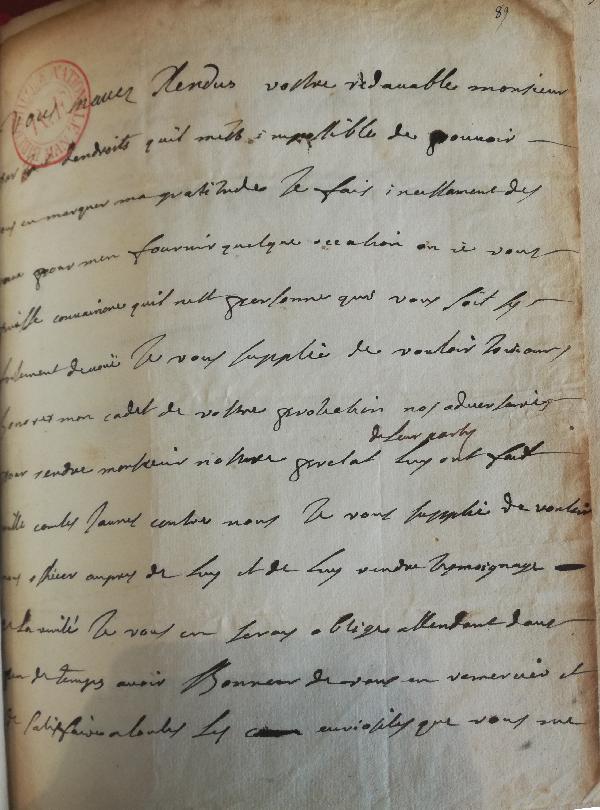 89
vous mavez Rendus vostre redauable monsieur
dendroits quil mest impossible de pouvoir
en marquer ma gratitude Je fais incessament des
pour men fournir quelque occation ou ie vous
puisse convaincre quil nest personne qui vous soit sy
devoué Je vous supplie de vouloir toujours
honorer mon cadet de vostre protection nos adversaires
de leur party
pour rendre monsieur nostre prelat luy ont fait
mille contes Jaunes contre nous Je vous supplie de vouloir
aupres de luy et de luy rendre tesmoignage
de La verité Je vous en seray obligé attendant dans
peu de temps avoir lhonneur de vous en remercier et
de satisfaire a toutes les curiosites que vous me